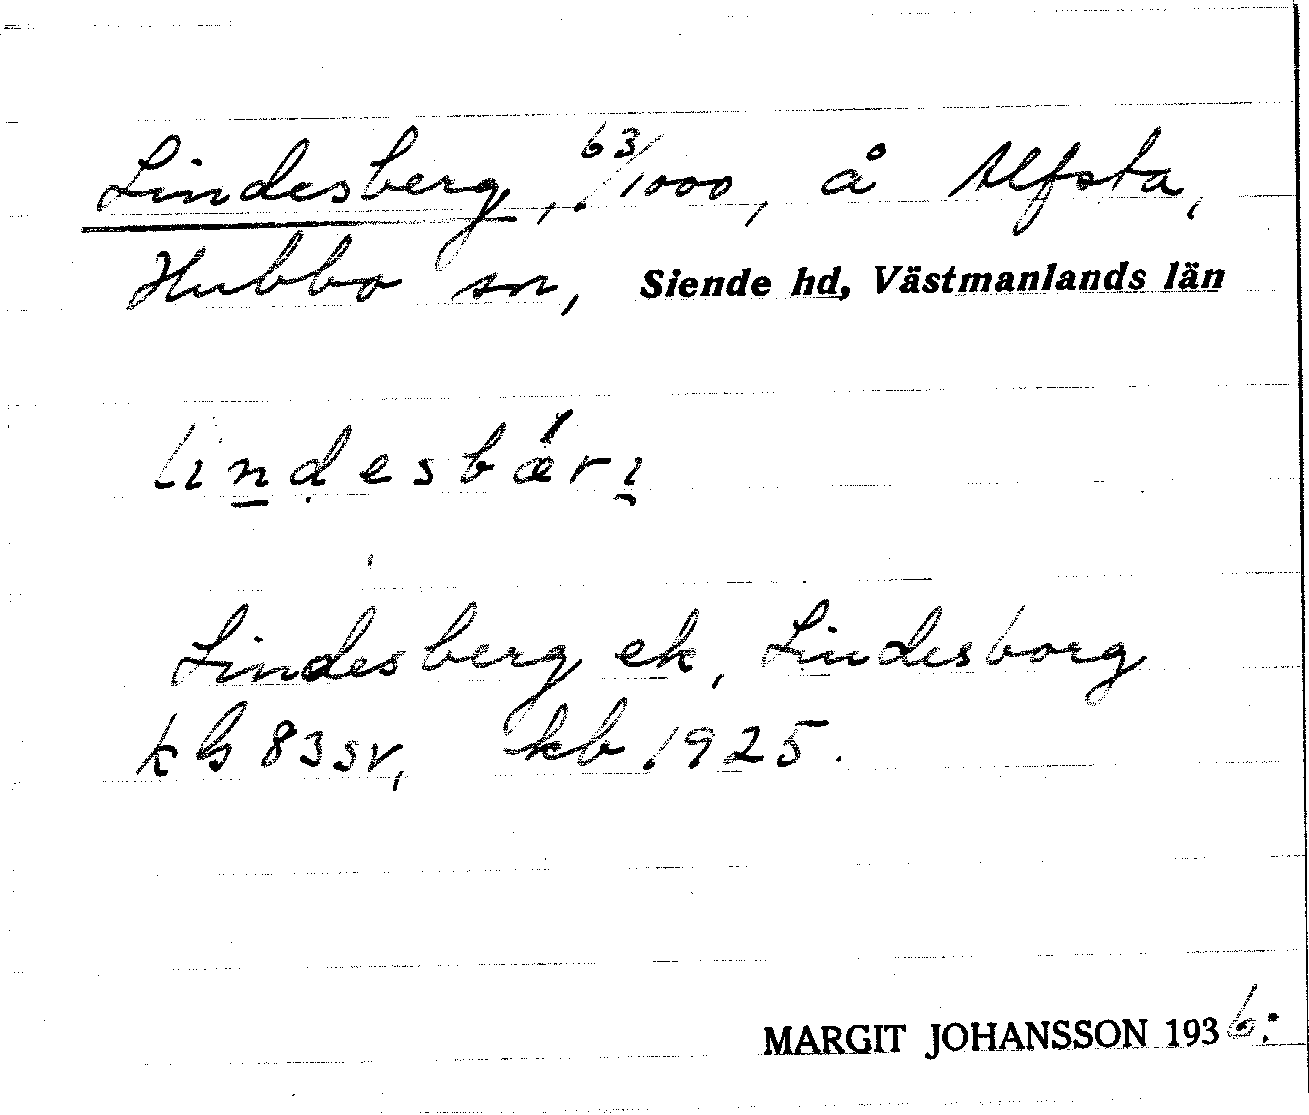 Lindesberg, 63/1000, å Ulfsta,
Hubbo sn, Siende hd, Västmanlands län
lindesbǽrı̯
Lindesberg ek, Lindesborg
kb 83 sv, kb 1925.
MARGIT JOHANSSON 1936: